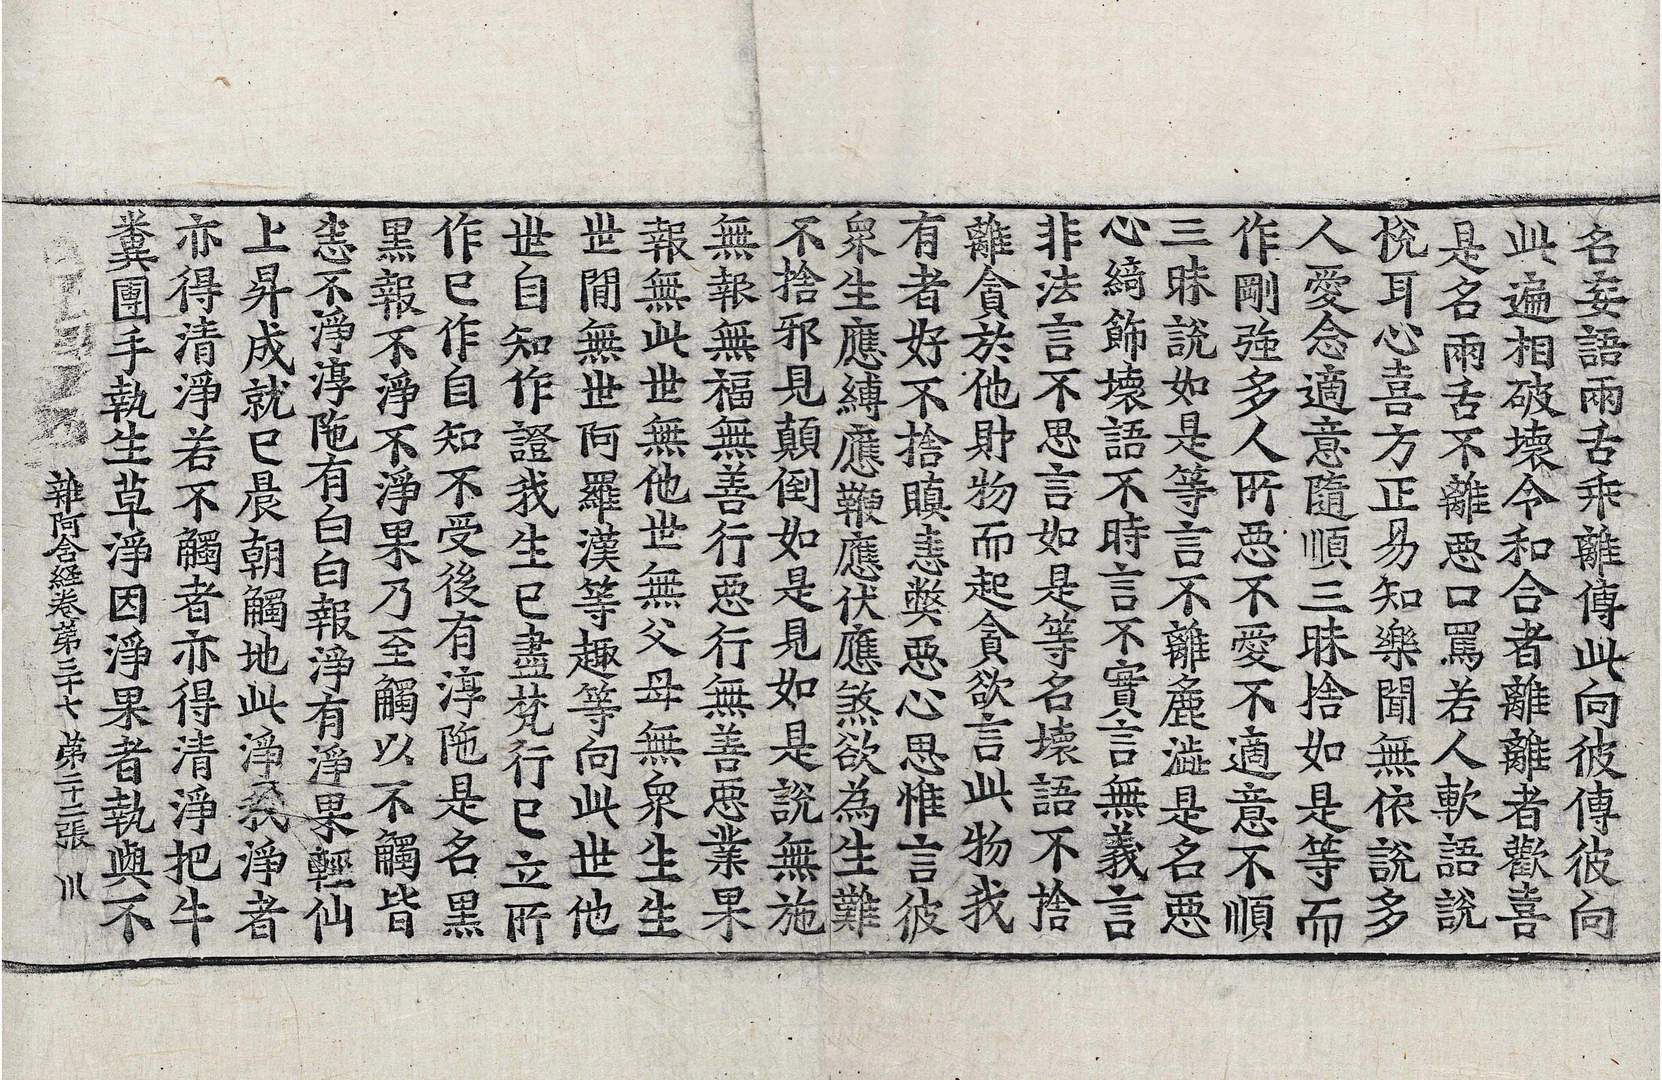 名妄語兩舌乖離傳此向彼傳彼向
此遍相破壞令和合者離離者歡喜
是名兩舌不離悪口罵若人軟語說
悅耳心喜方正易知樂聞無依說多
人愛念適意隨順三昧捨如是等而
作剛強多人所悪不愛不適意不順
三昧說如是等言不離麁澁是名悪
心綺飾壞語不時言不實言無義言
非法言不思言如是等名壞語不捨
離貪於他財物而起貪欲言此物我
有者好不捨瞋恚弊悪心思惟言彼
衆生應縛應鞭應伏應煞欲為生難
不捨邪見顛倒如是見如是說無施
無報無福無善行悪行無善悪業果
報無此世無他世無父母無衆生生
世間無世阿羅漢等趣等向此世他
世自知作證我生已盡梵行已立所
作已作自知不受後有淳陁是名黑
黑報不淨不淨果乃至觸以不觸皆
悉不淨淳陁有白白報淨有淨果輕仙
上昇成就已晨朝觸地此淨我淨者
亦得清淨若不觸者亦得清淨把牛
糞團手執生草淨因淨果者執與不
雜阿含経卷第三十七 第二十二張 川